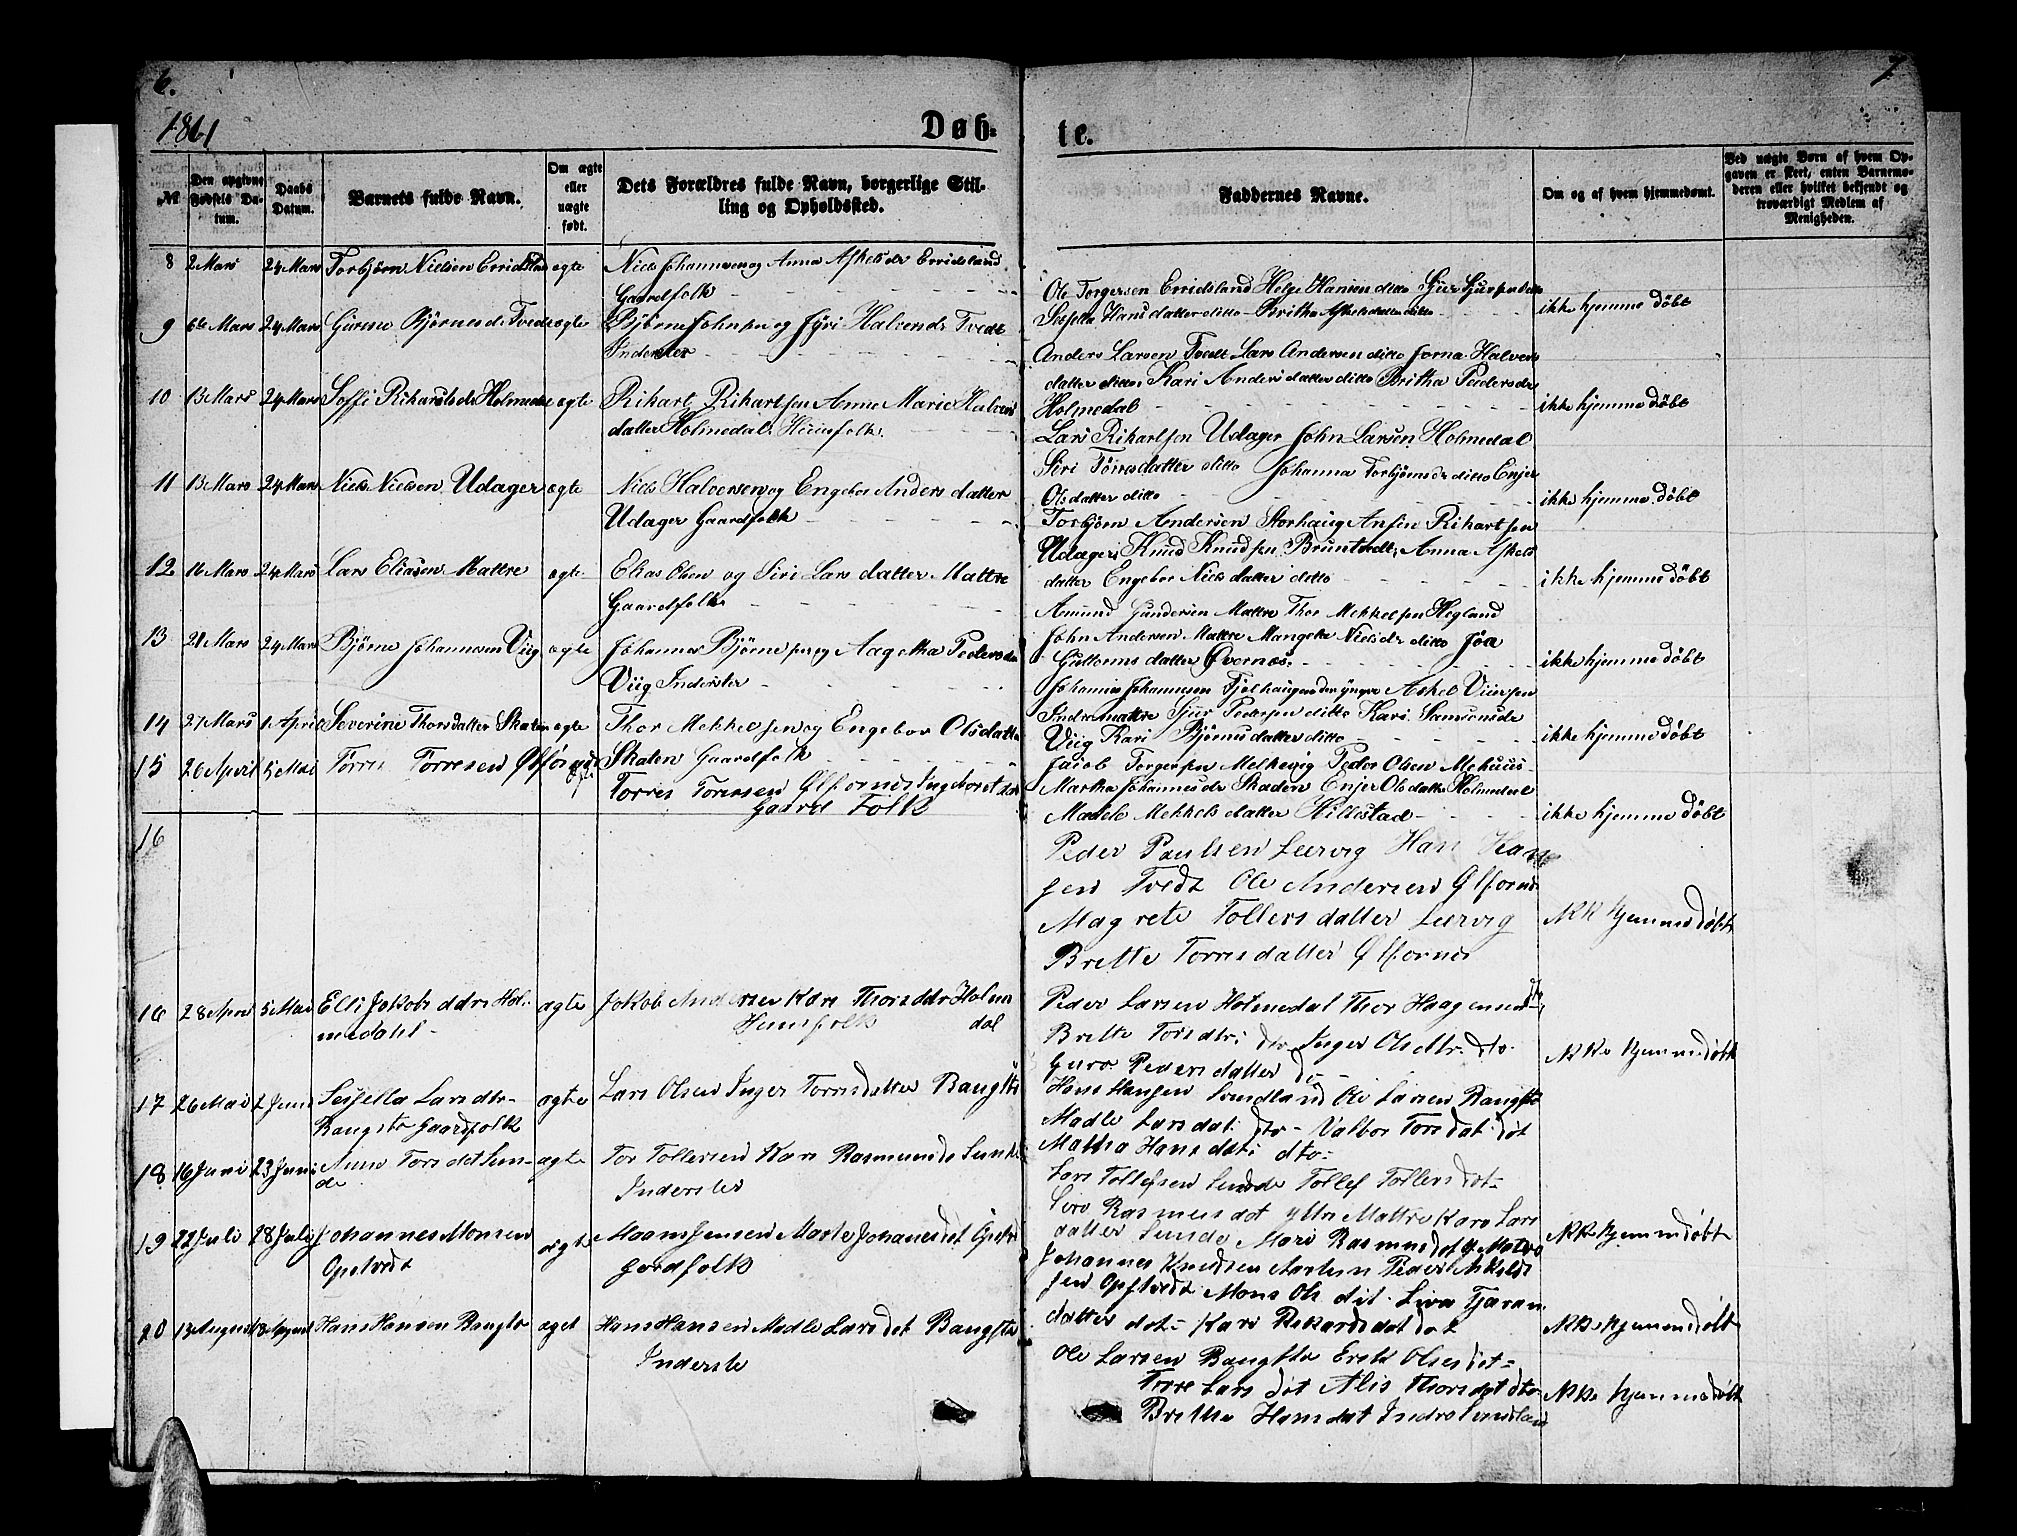 6.
7
1861
Døb-
te.
№
Den opgivne Fødsels Datum.
Daabs Datum.
Barnets fulde Navn.
Om ægte eller uægte født.
Dets Forældres fulde Navn, borgerlige Stilling og Opholdssted.
Faddernes Navne.
Om og af hvem hjemmedøbt.
Ved uægte Børn af hvem Opgaven er skeet, enten Barnemoderen eller hvilket bekjendt og troværdigt Medlem af Menigheden.
8 2 Mars 24 Mars Torbjørn Nielsen Erridsland egte Niels Johannesen og Anna Askelsdr Erridsland
Gaardfolk
Ole Torgersen Erridsland Helge Hansen ditto Sjur Sjursen ditto
Sessella Hansdatter ditto Britha Askelsdatter ditto
ikke hjemme døbt
9 6te Mars 24 Mars Bjørnesdr Tvedt egte Bjørne Johnsen og Halvensdr Tvedt
Inderster
Anders Larsen Tvedt Lars Andersen ditto Halvers
datter ditto Kari Andersdatter ditto Britha Pedersdr
Holmedal
ikke hjemme døbt
10 13 Mars 24 Mars Soffi Rikardsdr Holmedal egte Rikart Rikartsen Anne Marie Halvers
datter Holmedal Huusfolk
Lars Rikartsen Udager John Larsen Holmedal
Siri Tørresdatter ditto Johanna Torbjørnsdr ditto Enjer
Olsdatter ditto
ikke hjemme døbt
11 13 Mars 24 Mars Niels Nielsen Udager egte Niels Halversen og Engebor Anders datter
Udager Gaardfolk
Torbjørn Andersen Storhaug Ansin Rikartsen
Udager Knud Knudsen Bruntvedt Anna Askels
datter Engebor Niels datter ditto
ikke hjemme døbt
12 16 Mars 24 Mars Lars Eliasen Mattre egte Elias Olsen og Siri Lars datter Mattre
Gaardfolk
Amund Gundersen Mattre Thor Mekkelsen Hegland
John Andersen Mattre Mangela Nielsdr ditto
Guttormsdatter Øvernæs
ikke hjemme døbt
13 21 Mars 24 Mars Bjørne Johannesen Viig egte Johannes Bjørnesen og Aagetha Pedersdr
Viig Inderster
Johannes Johannesen Tjelhaugen den yngre Askel
Indre mattre Sjur Pedersen ditto Kari Samsonsdr
Viig Kari Bjørnsdatter ditto
ikke hjemme døbt
14 27 Mars 1 April Severine Thorsdatter Skaten egte Thor Mekkelsen og Engebor Olsdatter
Skaten Gaardfolk
Jacob Torgersen Melkevig Peder Olsen Mehuus
Martha Johannesdr Skaden Enjer Olsdatter Holmedal
Madele Mekkelsdatter Hillestad
ikke hjemme døbt
15 26 April 5 Mai Tørris Torresen Ølførnes egte
Torres Toresen Ølfornes
Gaard Folk
16
Peder Paulsen Lervig Hans Han
sen Tvedt Ole Andersen Ølfornes
Magrete Tollers datter Lervig
Brette Torresdatter Ølfornes
ikk hjemme døbt
16 28 April 5 Mai Elli Jakobs ddr Hol-
medahl
agte Jokob Andersen Kari Thorsddr Holme
dal
Huusfolk
Peder Larsen Holmedal Thor Haagensen dto
Brette Torsdtr dto Inger Olsdtr dto
Guro Pedersdatter do
ikke hjemmedøbt
17 26 Mai 2 Juni Sessella Larsdtr
Bangsto Gaardfolk
agte Lars Olsen Inger Torresdatter Bangsto
Hans Hansen Sundland Ole Larsen Bangsto
Madle Larsdat dto Valbor Torsdat dot
Martha Hansdat dto
18 16 Juni 23 Juni Torsdat Sun-
de
agte Tor Tollefsen Kari Rasmusdr Sunde
Inderster
Lars Tollefsen Sunde Tollef Tollersdot
Siro Rasmusdot Mattre Kari Lars
datter Sunde Mari Rasmusdot Mattre
ikke hjemmdøbt
19 22 Juli 28 Juli Johannes Monsen
Opstvedt
agte Jensen Marte Johanesdot
Gordfolk
Johannes Knudsen Peder
sen Opstvedt Mons Ols dit Siva
datter dot Kari Rikardsdat dot
ikke hjemmdøbt
20 13 August 18 August Hans Hansen Bangsto aget Hans Hansen Madle Larsdot Bangsto
Inderste
Ole Larsen Bangsto Erik Olsen dot
Lars dot Alis Thorsdot dto
Brithe Hansdat Indre Sundland
ikke hjemmedøbt